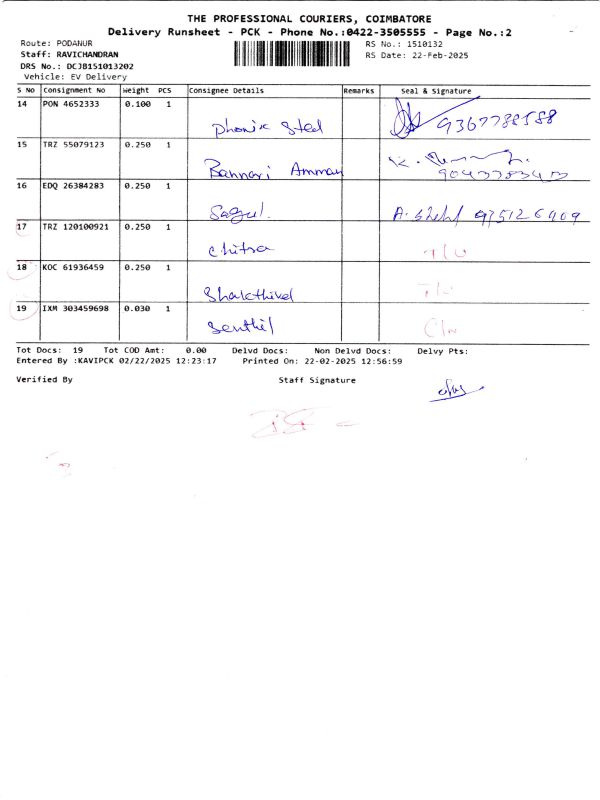 THE PROFESSIONAL COURIERS, COIMBATORE
Delivery Runsheet - PCK - Phone No.:0422-3505555 - Page No.:2
Route: PODANUR RS No.: 1510132
Staff: RAVICHANDRAN RS Date: 22-Feb-2025
DRS No.: DCJB151013202
Vehicle: EV Delivery
S No Consignment No Weight PCS Consignee Details Remarks Seal & Signature
14 PON 4652333 0.100 1
Phonix Steel 9367788588
15 TRZ 55079123 0.250 1
Bannari Amman
16 EDQ 26384283 0.250 1
Sagul. 9751266909
17 TRZ 120100921 0.250 1
Chitra
18 KOC 61936459 0.250 1
Shakthivel
19 IXM 303459698 0.030 1
Senthil
Tot Docs: 19 Tot COD Amt: 0.00 Delvd Docs: Non Delvd Docs: Delvy Pts:
Entered By :KAVIPCK 02/22/2025 12:23:17 Printed On: 22-02-2025 12:56:59
Verified By Staff Signature